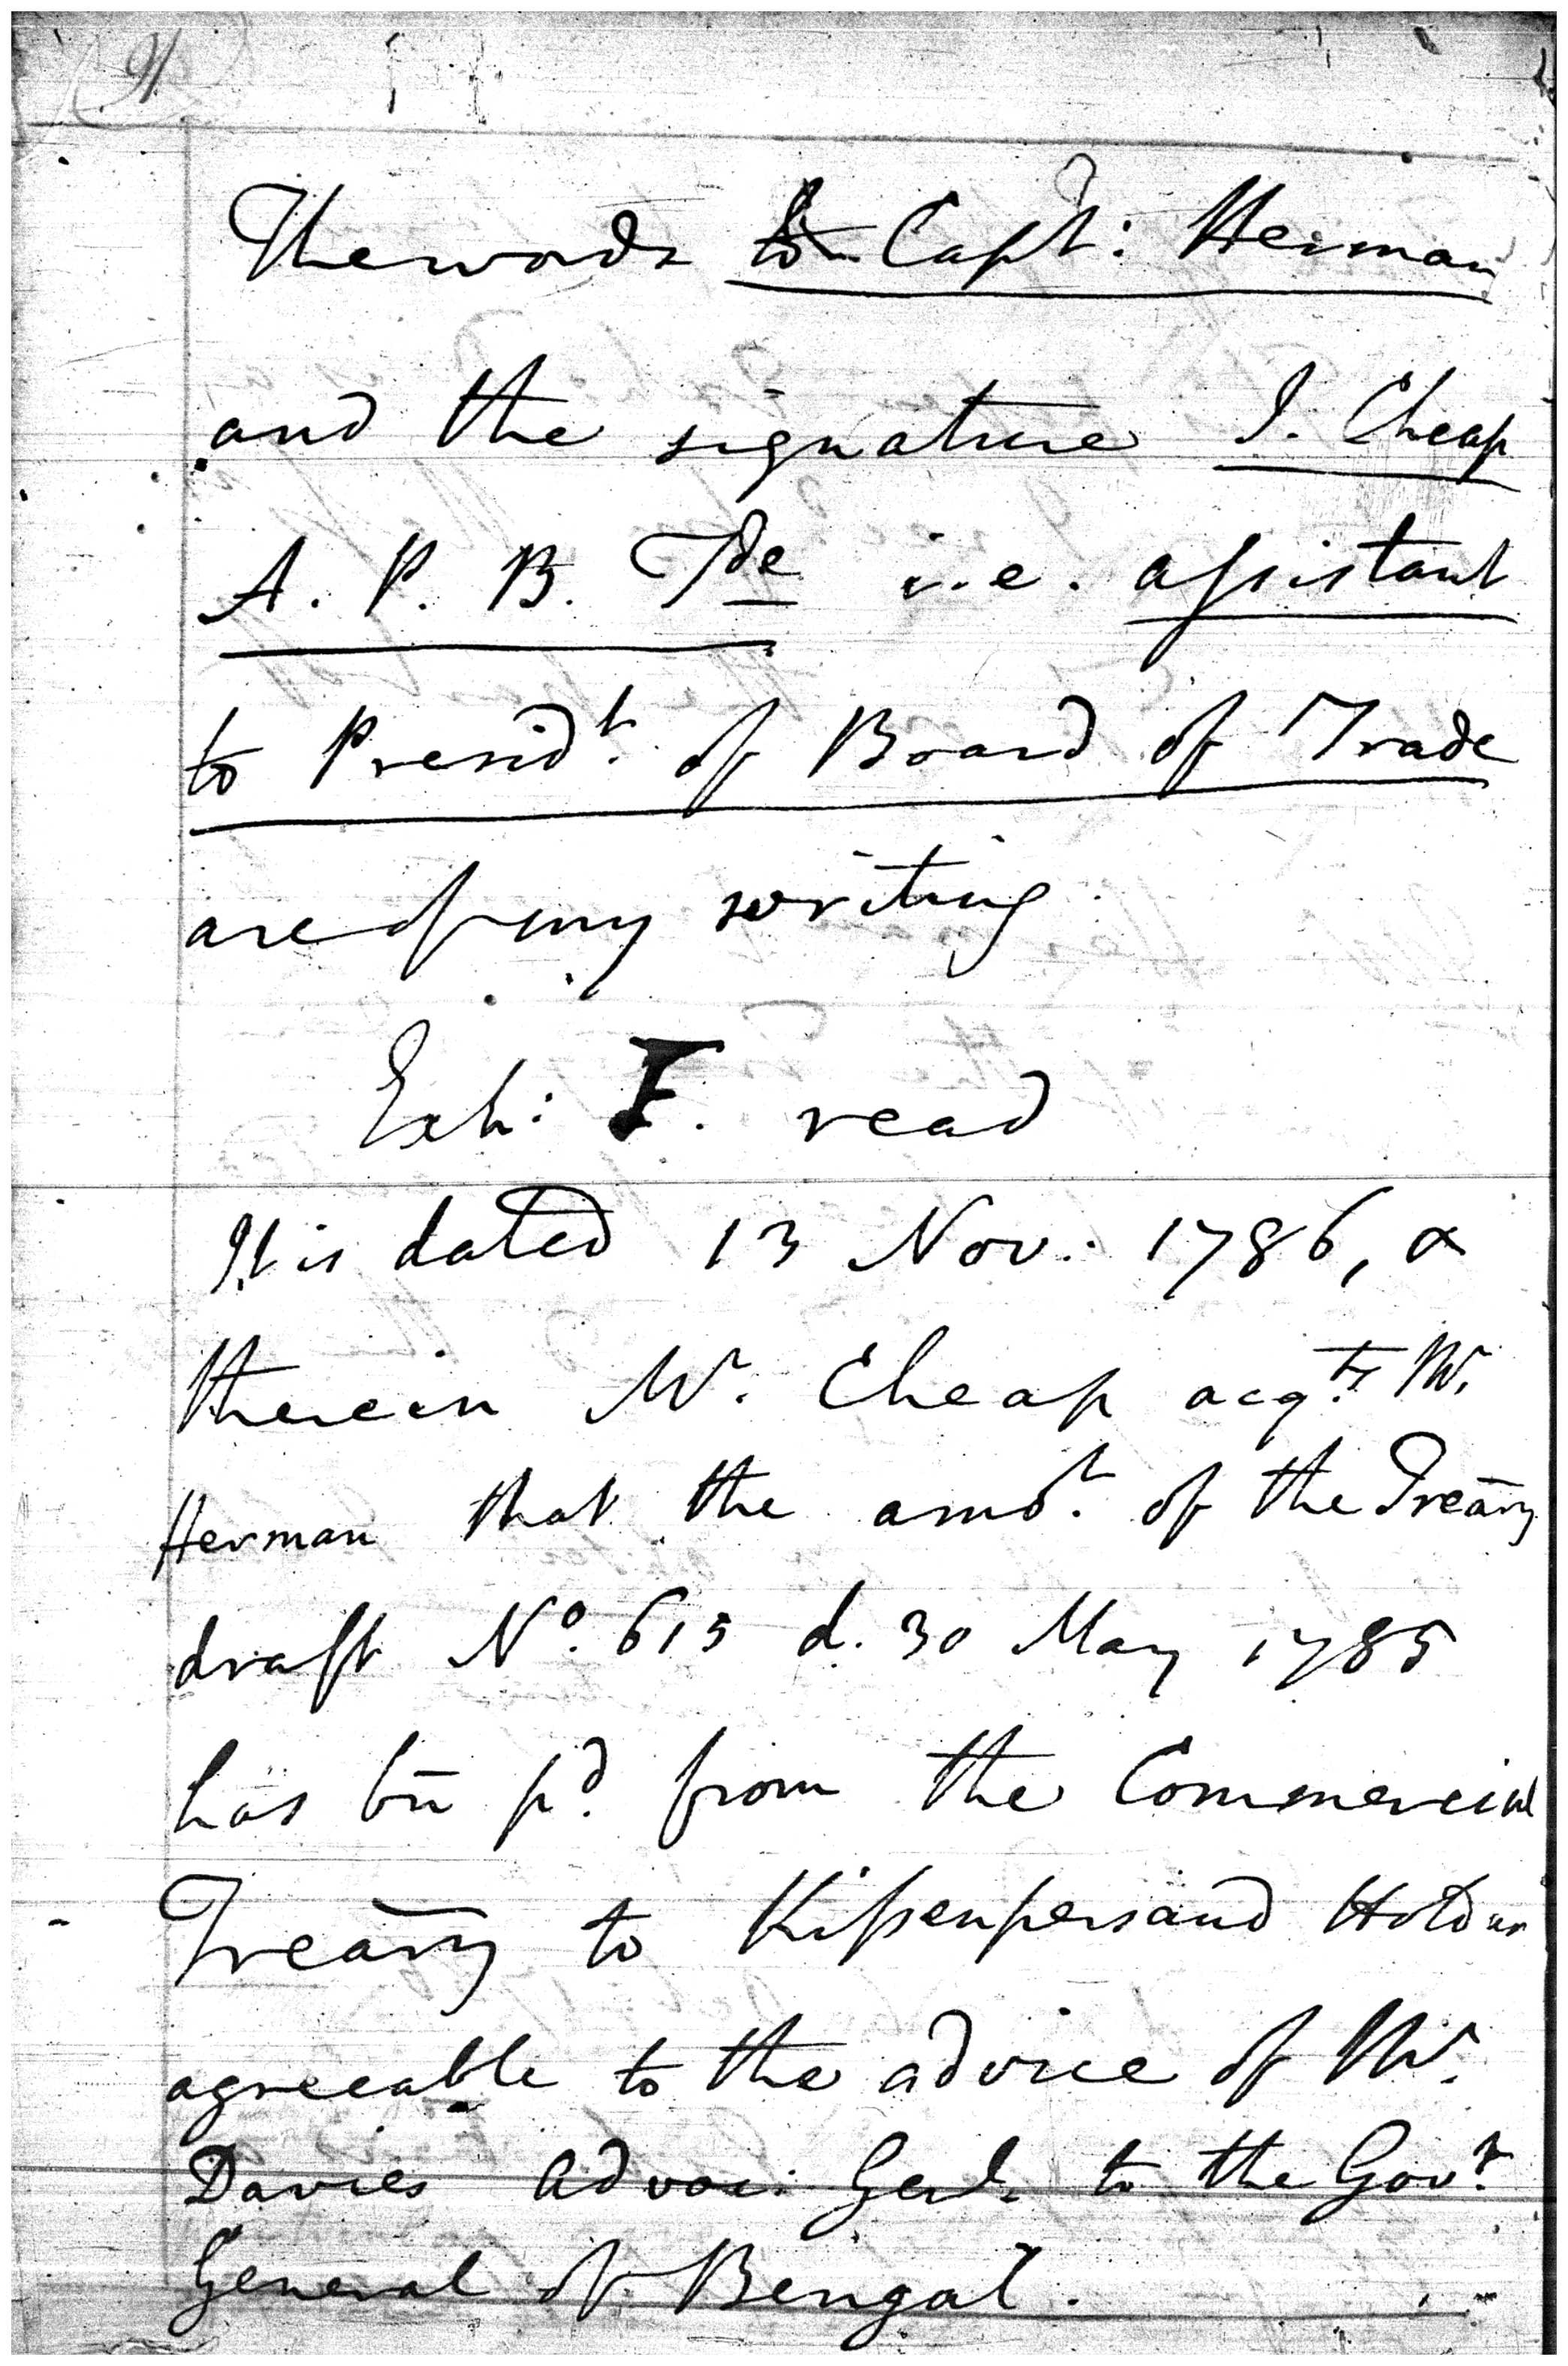 91
The words to Capt: Herman
and the signature J. Cheap
A. P. B. Tde i.e. assistant
to Presidt. of Board of Trade
are of my writing
Exh: F. read
It is dated 13 Nov: 1786, &
therein Mr. Cheap acqts. Mr.
Herman that the amot. of the Treāry
draft No. 615 d. 30 May 1785
has bn̄ pd. from the Commercial
Treāry to Kissenpersaud Holdar
agreeable to the advice of Mr.
Davies Advoc: Genl. to the Govr.
General of Bengal.